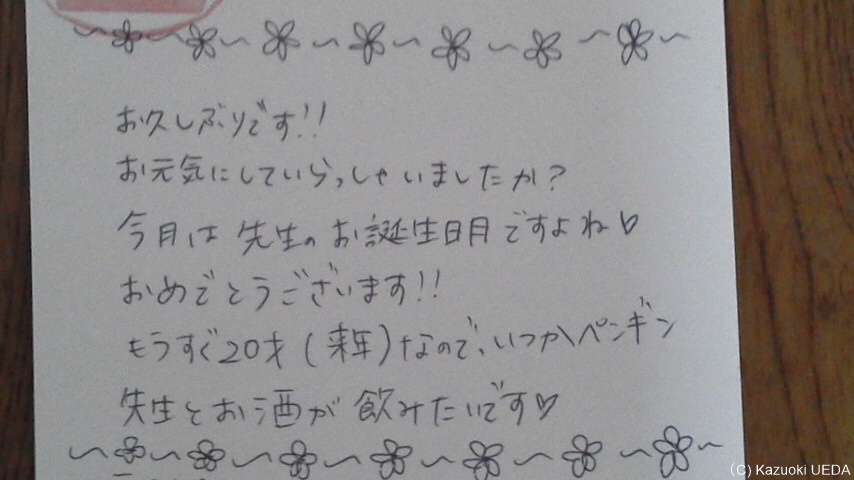 お久しぶりです!!
お元気にしていらっしゃいましたか?
今月は先生のお誕生日月ですよね♡
おめでとうございます!!
もうすぐ20才(来年)なので、いつかペンギン
先生とお酒が飲みたいです♡
(C) Kazuoki UEDA